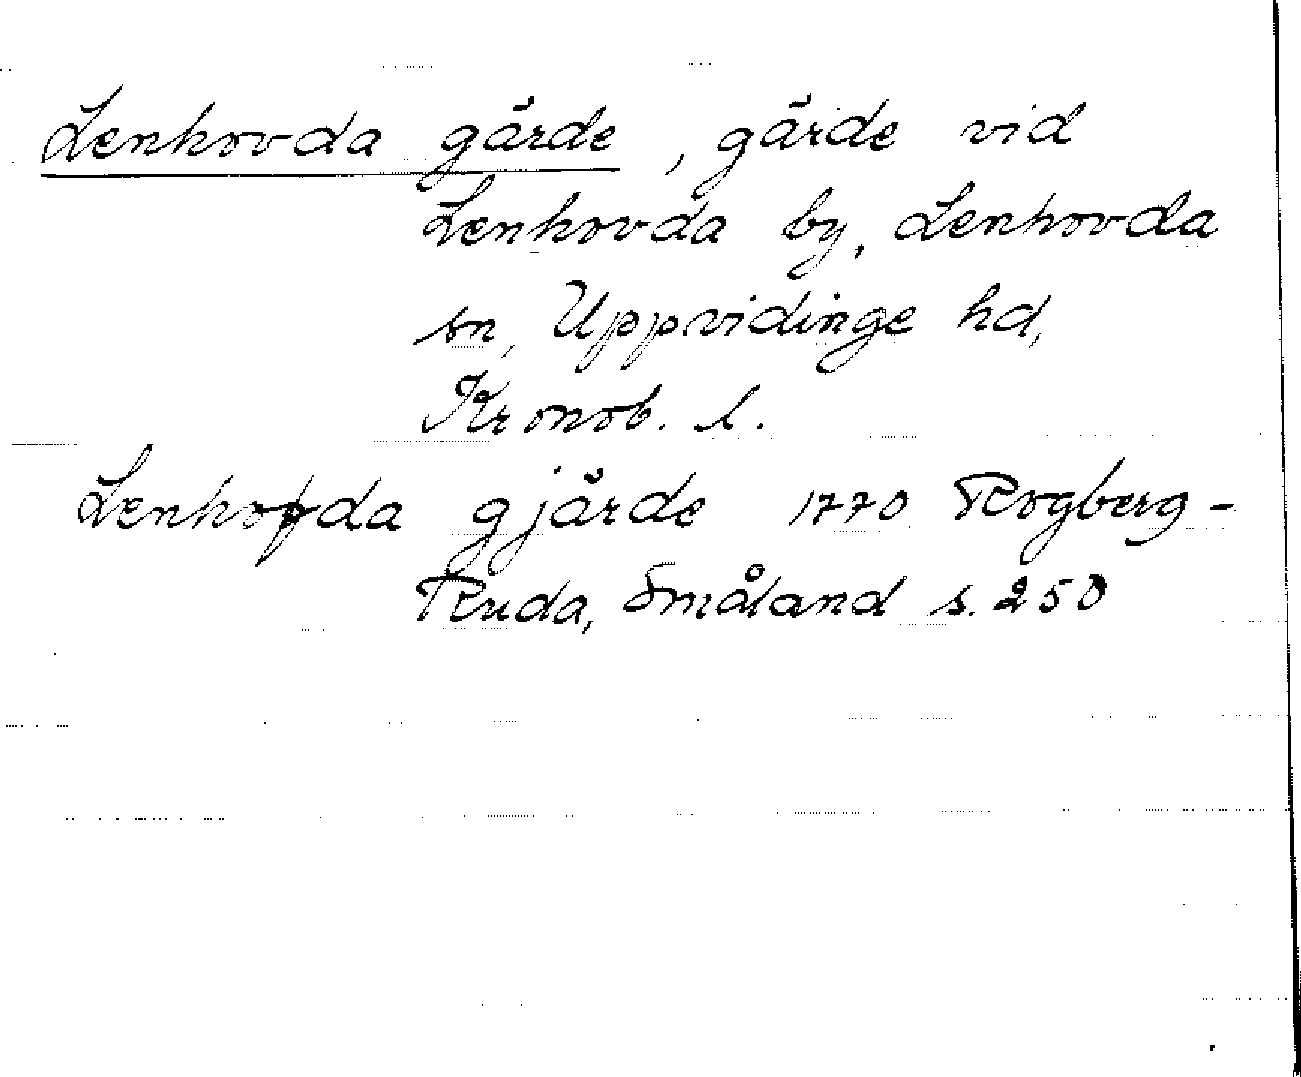 Lenhovda gärde, gärde vid
Lenhovda by, Lenhovda
sn, Uppvidinge hd,
Kronob. l.
Lenhofda gjärde 1770 Rogberg-
Ruda, Småland s. 250